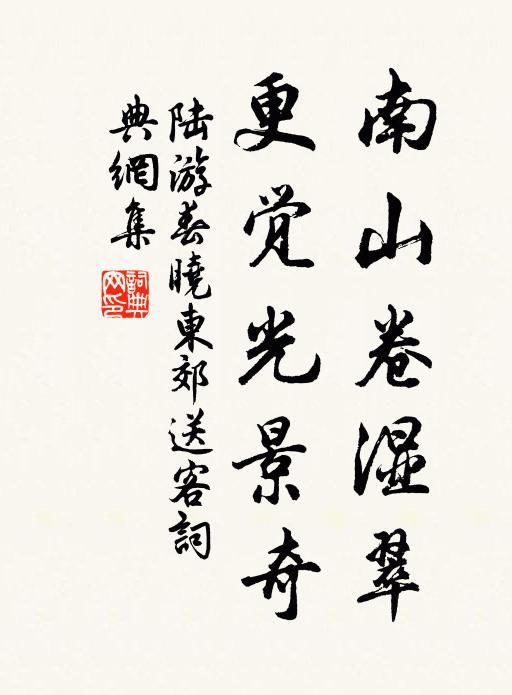 南山卷湿翠
更觉光景奇
陆游春曉東郊送客詞
典網集
詞典网印